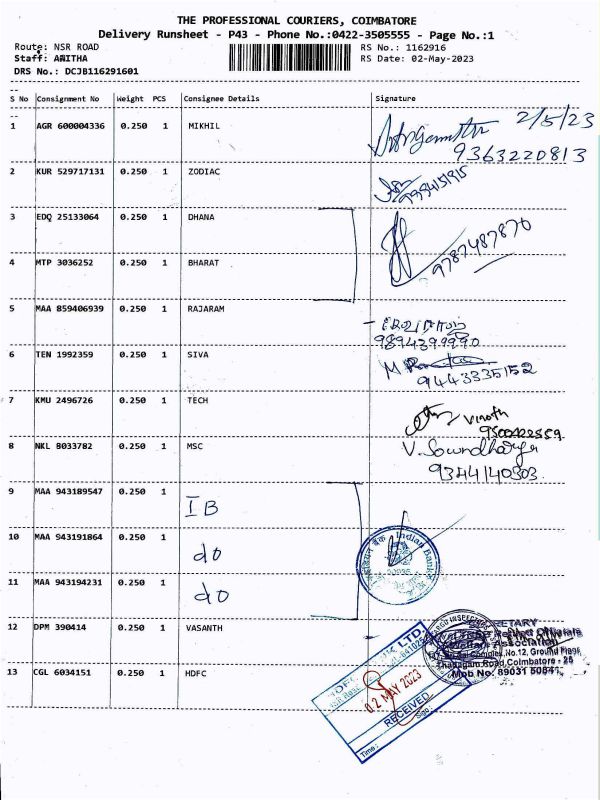 THE PROFESSIONAL COURIERS, COIMBATORE
Delivery Runsheet - P43 - Phone No.:0422-3505555 - Page No.:1
Route: NSR ROAD RS No.: 1162916
Staff: ARITHA RS Date: 02-May-2023
DRS No.: DCJB116291601
S No Consignment No Weight PCS Consignee Details Signature
1 AGR 600004336 0.250 1 MIKHIL 2/5/23
9363220813
2 KUR 529717131 0.250 1 ZODIAC
3 EDQ 25133064 0.250 1 DHANA 9787487870
4 MTP 3036252 0.250 1 BHARAT
5 MAA 859406939 0.250 1 RAJARAM
9894399990
6 TEN 1992359 0.250 1 SIVA
9443335152
7 KMU 2496726 0.250 1 TECH
Vinoth
8 NKL 8033782 0.250 1 MSC V. Soundharya
9344140303
9 MAA 943189547 0.250 1 IB
10 MAA 943191864 0.250 1 do
Indian Bank
11 MAA 943194231 0.250 1 do
12 DPM 390414 0.250 1 VASANTH
SECRETARY
Association
No.12, Ground Floor
Thadagam Road, Coimbatore - 25
13 CGL 6034151 0.250 1 HDFC Mob No: 89031 50841
LTD.
02 MAY 2023
RECEIVED
Time: Sign: